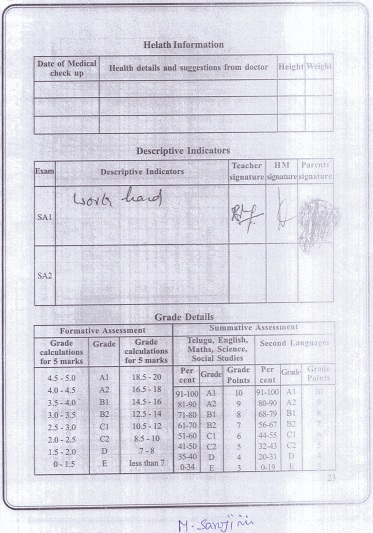 Helath Information
Date of Medical check up Health details and suggestions from doctor Height Weight
Descriptive Indicators
Exam Descriptive Indicators Teacher signature HM signature Parents signature
SA1 work hard
SA2
Grade Details
Formative Assessment Summative Assessment
Grade calculations for 5 marks Grade Grade calculations for 20 marks Telugu, English, Maths, Science, Social Studies Second Languages
Per cent Grade Grade Points Per cent Grade Grade Points
4.5 - 5.0 A1 18.5 - 20 91-100 A1 10 91-100 A1 10
4.0 - 4.5 A2 16.5 - 18 81-90 A2 9 80-90 A2 9
3.5 - 4.0 B1 14.5 - 16 71-80 B1 8 68-79 B1 8
3.0 - 3.5 B2 12.5 - 14 61-70 B2 7 56-67 B2 7
2.5 - 3.0 C1 10.5 - 12 51-60 C1 6 44-55 C1 6
2.0 - 2.5 C2 8.5 - 10 41-50 C2 5 32-43 C2 5
1.5 - 2.0 D 7 - 8 35-40 D 4 20-31 D 4
0 - 1.5 E less than 7 0-34 E 3 0-19 E 3
23
M. Sarojini